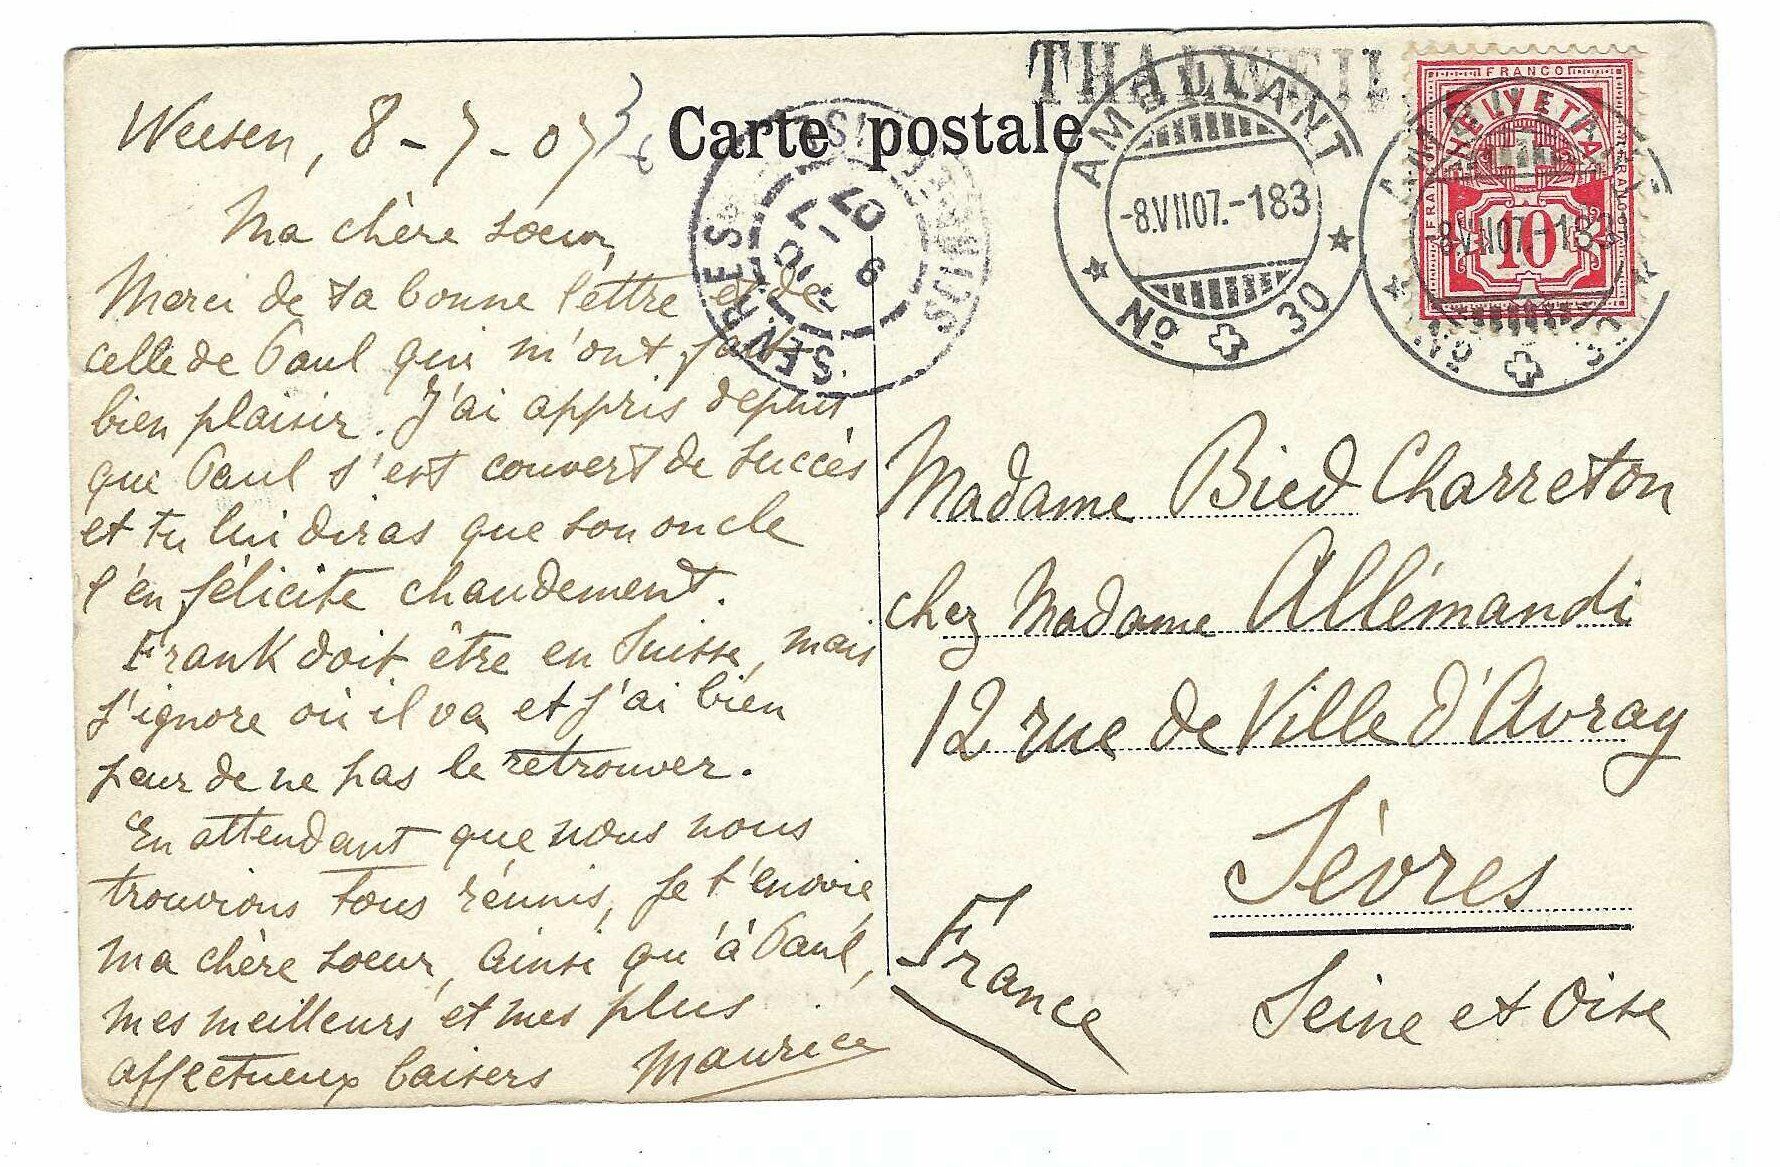 Weesen, 8-7-07
Carte postale
THALWEIL
AMBULANT
-8.VII07.-183
No 30
FRANCO
HELVETIA
10
AMBULANT
-8.VII07.-183
No 30
SEINE-ET-OISE
SÈVRES
9 -7 07
Ma chère soeur,
Merci de ta bonne lettre et de
celle de Paul qui m'ont fait
bien plaisir. J'ai appris depuis
que Paul s'est couvert de succès
et tu lui diras que son oncle
l'en félicite chaudement.
Frank doit être en Suisse, mais
j'ignore où il va et j'ai bien
peur de ne pas le retrouver.
En attendant que nous nous
trouvions tous réunis, je t'envoie,
ma chère soeur, ainsi qu'à Paul,
mes meilleurs et mes plus
affectueux baisers Maurice
Madame Bied Charreton
chez Madame Allémandi
12 rue de Ville d'Avray
Sèvres
Seine et Oise
France